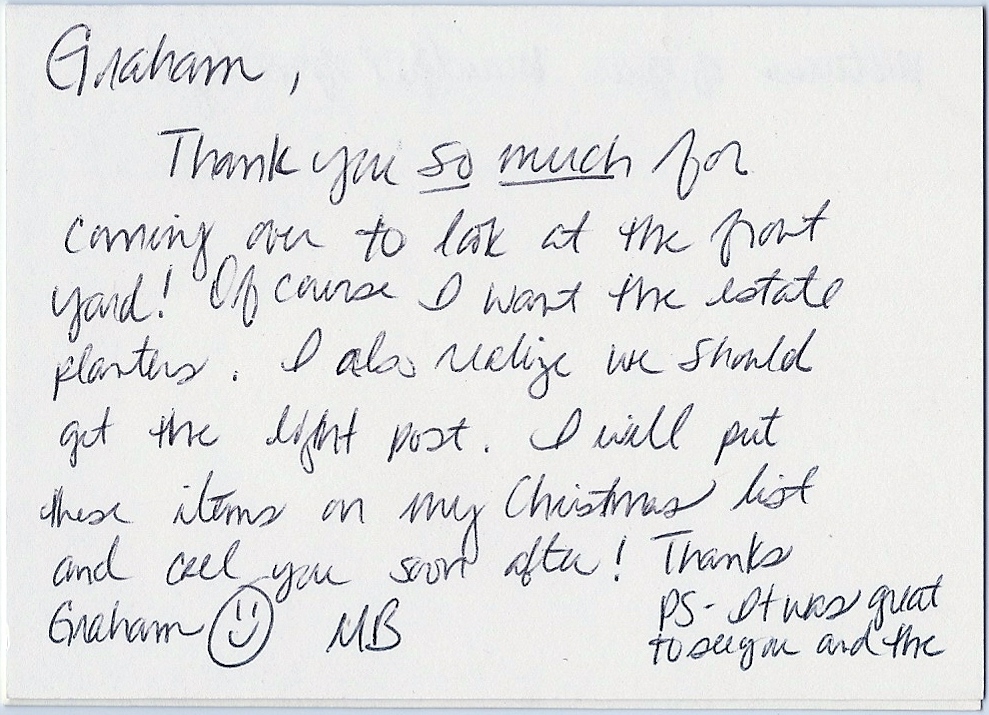 Graham,
Thank you so much for
coming over to look at the front
yard! Of course I want the estate
planters. I also realize we should
get the light post. I will put
these items on my Christmas list
and call you soon after! Thanks
Graham ☺ MB
PS- It was great
to see you and the